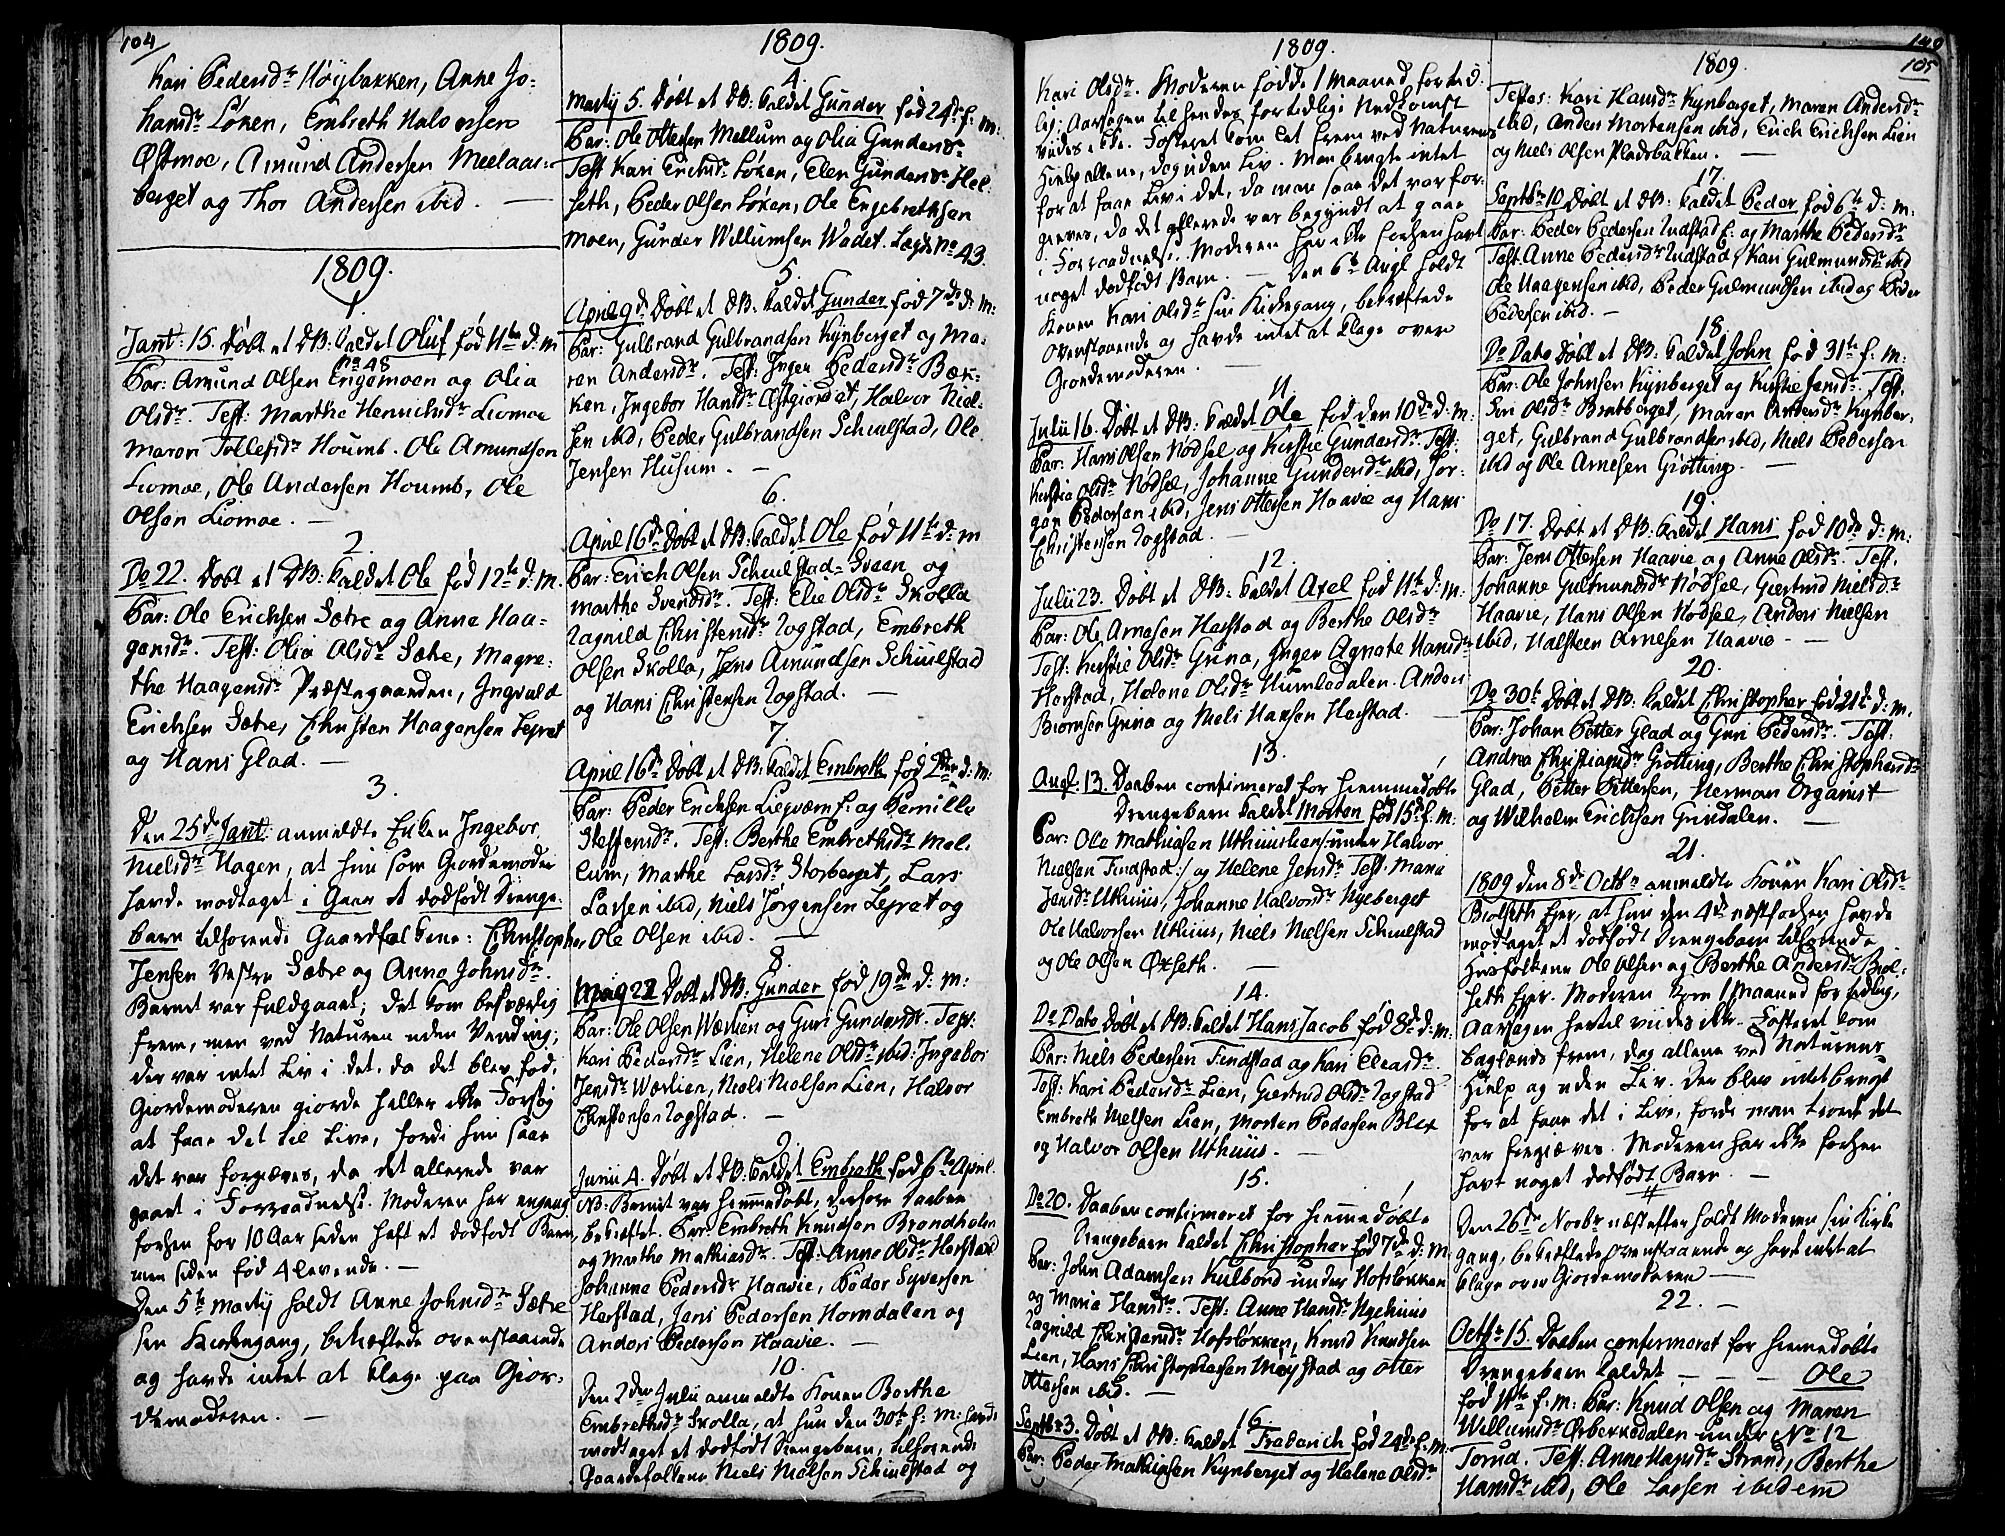 104
Kari Pedersdr Høybakken, Anne Jo-
hansdr Løken, Embreth Halvorsen
Østmoe, Amund Andersen Meelaas-
berget og Thor Andersen ibid. —
1809.
1
Janr: 15. Døbt et DB: kaldet Oluf fød 11te d: M
No 48
Par: Amund Olsen Engemoen og Olia
Olsdr. Test: Marthe Henrichsdr Liomoe
Maren Tollefsdr Houmb. Ole Amundsen
Liomoe, Ole Andersen Houmb, Ole
Olsen Liomoe. —
2.
Do 22. Døbt et DB: kaldet Ole fød 12te d: M.
Par: Ole Erichsen Sætre og Anne Haa-
gensdr. Test: Olia Olsdr Sætre, Magre-
the Haagensdr Præstegaarden, Ingvald
Erichsen Sætre, Christen Haagensen Lejret
og Hans Glad. —
3.
Den 25de Janr: anmeldte Enken Ingebor
Nielsdr Hagen, at hun som Giordemoder
havde modtaget i Gaar et dødfødt Drenge-
barn tilhørende Gaardfolkene: Christopher
Jensen Vestre Sætre og Anne Johnsdr.
Barnet var fuldgaaet; det kom besværlig
frem, men ved Naturen uden Vending;
der var intet Liv i det, da det blev fød.
Giordemoderen giorde heller ikke Forsøg
at faae det til Live, fordi hun saae
det var forgieves, da det allerede var
gaaet i Forraadnelse. Moderen har engang
forhen for 10 Aar siden haft et dødfødt Barn,
men siden fød 4 levende. —
Den 5te Martij holdt Anne Johnsdr Sætre
sin Kirkegang, bekræftede ovenstaaende
og havde intet at klage paa Gior-
demoderen. —
1809.
4.
Martij 5. Døbt et DB: kaldet Gunder fød 24de f: M:
Par: Ole Ottesen Mellum og Olia Gundersdr
Test Kari Erichsdr Løken, Elen Gundersdr Hel-
seth, Peder Olsen Løken, Ole Engebrethsen
Moen, Gunder Willumsen Wadet. Lægd No 43.
5.
April 9de Døbt et DB: kaldet Gunder fød 7de d: M:
Par: Gulbrand Gulbrandsen Kynberget og Ma-
ren Andersdr. Test: Inger Pedersdr Bæk-
ken, Ingebor Hansdr Østgiordet, Halvor Niel-
sen ibid, Peder Gulbrandsen Schiulstad, Ole
Jensen Husum. —
6.
April 16de Døbt et DB: kaldet Ole fød 11te d: M
Par: Erich Olsen Schiulstad-Sveen og
Marthe Svendsdr. Test: Elie Olsdr Skolla
Ragnild Christensdr Rogstad, Embreth
Olsen Skolla, Jens Amundsen Schiulstad
og Hans Christensen Rogstad. —
7.
April 16de Døbt et DB: kaldet Embreth fød 2den d: M:
Par: Peder Erichsen Liegværn f: og Pernille
Steffensdr. Test: Berthe Embrethsdr Mel-
lum, Marthe Larsdr Storberget, Lars
Larsen ibid, Niels Jørgensen Lejret og
Ole Olsen ibid. —
8.
Maij 22 Døbt et DB. Gunder fød 19de d: M:
Par: Ole Olsen Wærlien og Guri Gundersdr. Test:
Kari Pedersdr Lien, Helene Olsdr ibid: Ingebor
Jensdr Wærlien, Niels Nielsen Lien, Halvor
Christensen Rogstad. —
9.
Junii 4. Døbt et DB: kaldet Embreth fød 6te April.
NB. Barnet var hiemmedøbt, derfore Daaben
bekræftet. Par: Embreth Knudsen Brendholen
og Marthe Mathiasdr. Test: Anne Olsdr Herstad
Johanne Pedersdr Haavie, Peder Syversen
Herstad, Jens Pedersen Horndalen og
Anders Pedersen Haavie. —
10.
Den 2den Julii anmeldte Konen Berthe
Embrethsdr Skolla, at hun den 30te f: M: havde
modtaget et dødfødt Drengebarn, tilhørende
Gaardefolkene Niels Nielsen Schiulstad og
1809.
Kari Olsdr. Moderen fødde 1 Maaned for tid-
lig: Aarsagen til hendes fortidlige Nedkomst
vides ikke. Fosteret kom let frem ved Naturens
Hielp allene, dog uden Liv. Man brugte intet
for at faae Liv i det, da man saae det var for-
gieves, da det allerede var begyndt at gaae
i Forraadnelse. Moderen har ikke forhen havt
noget dødfødt Barn. — Den 6te Augt. holdt
Konen Kari Olsdr sin Kirkegang, bekræftede
Ovenstaaende og havde intet at klage over
Giordemoderen. —
11.
Julii 16. Døbt et DB: kaldet Ole fød den 10de d: M:
Par: Hans Olsen Nødsel og Kirstie Gundersdr. Test:
Kirstia Olsdr Nødsel, Johanne Gundersdr ibid, Jør-
gen Pedersen ibid, Jens Ottersen Haavie og Hans
Christensen Rogstad. —
12.
Julii 23. Døbt et DB: kaldet Axel fød 11te d: M:
Par: Ole Arnesen Herstad og Berthe Olsdr
Test: Kirstie Olsdr Grina, Inger Agnete Hansdr
Herstad, Helene Olsdr Humledalen. Anders
Biørnsen Grina og Niels Hansen Herstad. —
13.
Augt. 13. Daaben confirmeret for hiemmedøbte
Drengebarn kaldet Morten fød 15de f: M:
Par: Ole Mathiasen Uthuuslien /: under Halvor
Nielsen Findstad :/ og Helene Jensdr Test: Maria
Jensdr Uthuus, Johanne Halvorsdr Nyeberget
Ole Halvorsen Uthuus, Niels Nielsen Schiulstad
og Ole Olsen Øxseth. —
14.
Do Dato Døbt et DB: kaldet Hans Jacob fød 8de d: M:
Par: Niels Pedersen Findstad og Kari Eleasdr.
Test: Kari Pedersdr Lien, Giertrud Olsdr Rogstad
Embreth Nielsen Lien, Morten Pedersen Blix
og Halvor Olsen Uthuus. —
15.
Do 20. Daaben confirmeret for hiemmedøbte
Drengebarn kaldet Christopher fød 7de d: M:
Par: John Adamsen Kulbord under Hofsløkken
og Maria Hansdr. Test: Anne Hansdr Nyehuus
Ragnild Christiansdr Hofsløkken, Knud Knudsen
Lien, Hans Christophersen Møystad og Otter
Ottersen ibid. —
16.
Septbr 3. Døbt et DB: kaldet Frederich fød 24de f: M:
Par: Peder Mathiasen Kynberget og Helene Olsdr
1809.
140
105
Testes: Kari Hansdr Kynberget, Maren Andersdr
ibid, Anders Mortensen ibid, Erich Erichsen Lien
og Niels Olsen Pladsbakken. —
17.
Septbr 10 Døbt et DB: kaldet Peder fød 6te d: M:
Par: Peder Pedersen Rudstad f: og Marthe Pedersdr
Test. Anne Pedersdr Rudstad, Kari Gulmundsdr ibid
Ole Haagensen ibid, Peder Gulmundsen ibid og Peder
Pedersen ibid. —
18.
Do Dato Døbt et DB: kaldet John fød 31te f: M:
Par: Ole Johnsen Kynberget og Kirstie Jensdr. Test.
Siri Olsdr Bratberget, Maren Andersdr Kynber-
get, Gulbrand Gulbrandsen ibid, Niels Pedersen
ibid og Ole Arnesen Grøtting. —
19.
Do 17. Døbt et DB: kaldet Hans fød 10de d: M:
Par: Jens Ottersen Haavie og Anne Olsdr. Test.
Johanne Gulmundsdr Nødsel, Giertrud Nielsdr
Haavie, Hans Olsen Nødsel, Anders Nielsen
ibid, Halsteen Arnesen Haavie. —
20.
Do 30te Døbt et DB: kaldet Christopher fød 21de d: M.
Par: Johan Petter Glad og Guri Pedersdr. Test:
Andrea Christiansdr Grøtting, Berthe Christophersdr
Glad, Petter Pettersen, Herman Organist
og Wilhelm Erichsen Grindalen. —
21.
1809 den 8de Octbr anmeldte Konen Kari Olsdr
Biølseth Ejer, at hun den 4de næstforhen havde
modtaget et dødfødt Drengebarn tilhørende
Husfolkene Ole Olsen og Berthe Andersdr Biøl-
seth Ejer. Moderen kom 1 Maaned for tidlig,
Aarsagen hertil vides ikke. Fosteret kom
baglends frem, dog allene ved Naturens
Hielp og uden Liv. Der blev intet brugt
for at faae det i Live, fordi man troede det
var forgieves. Moderen har ikke forhen
havt noget dødfødt Barn. —
Den 26de Novbr næstefter holdt Moderen sin Kirke-
gang, bekræftede ovenstaaende og havde intet at
klage over Giordemoderen —
22. —
Octbr 15. Daaben confirmeret for hiemmedøbte
Drengebarn kaldet — — — Ole
fød 11te f: M: Par: Knud Olsen og Maren
Willumsdr Østbernedalen under No 12
Torud. Test: Anne Hansdr Strand, Berthe
Hansdr ibid, Ole Larsen ibidem